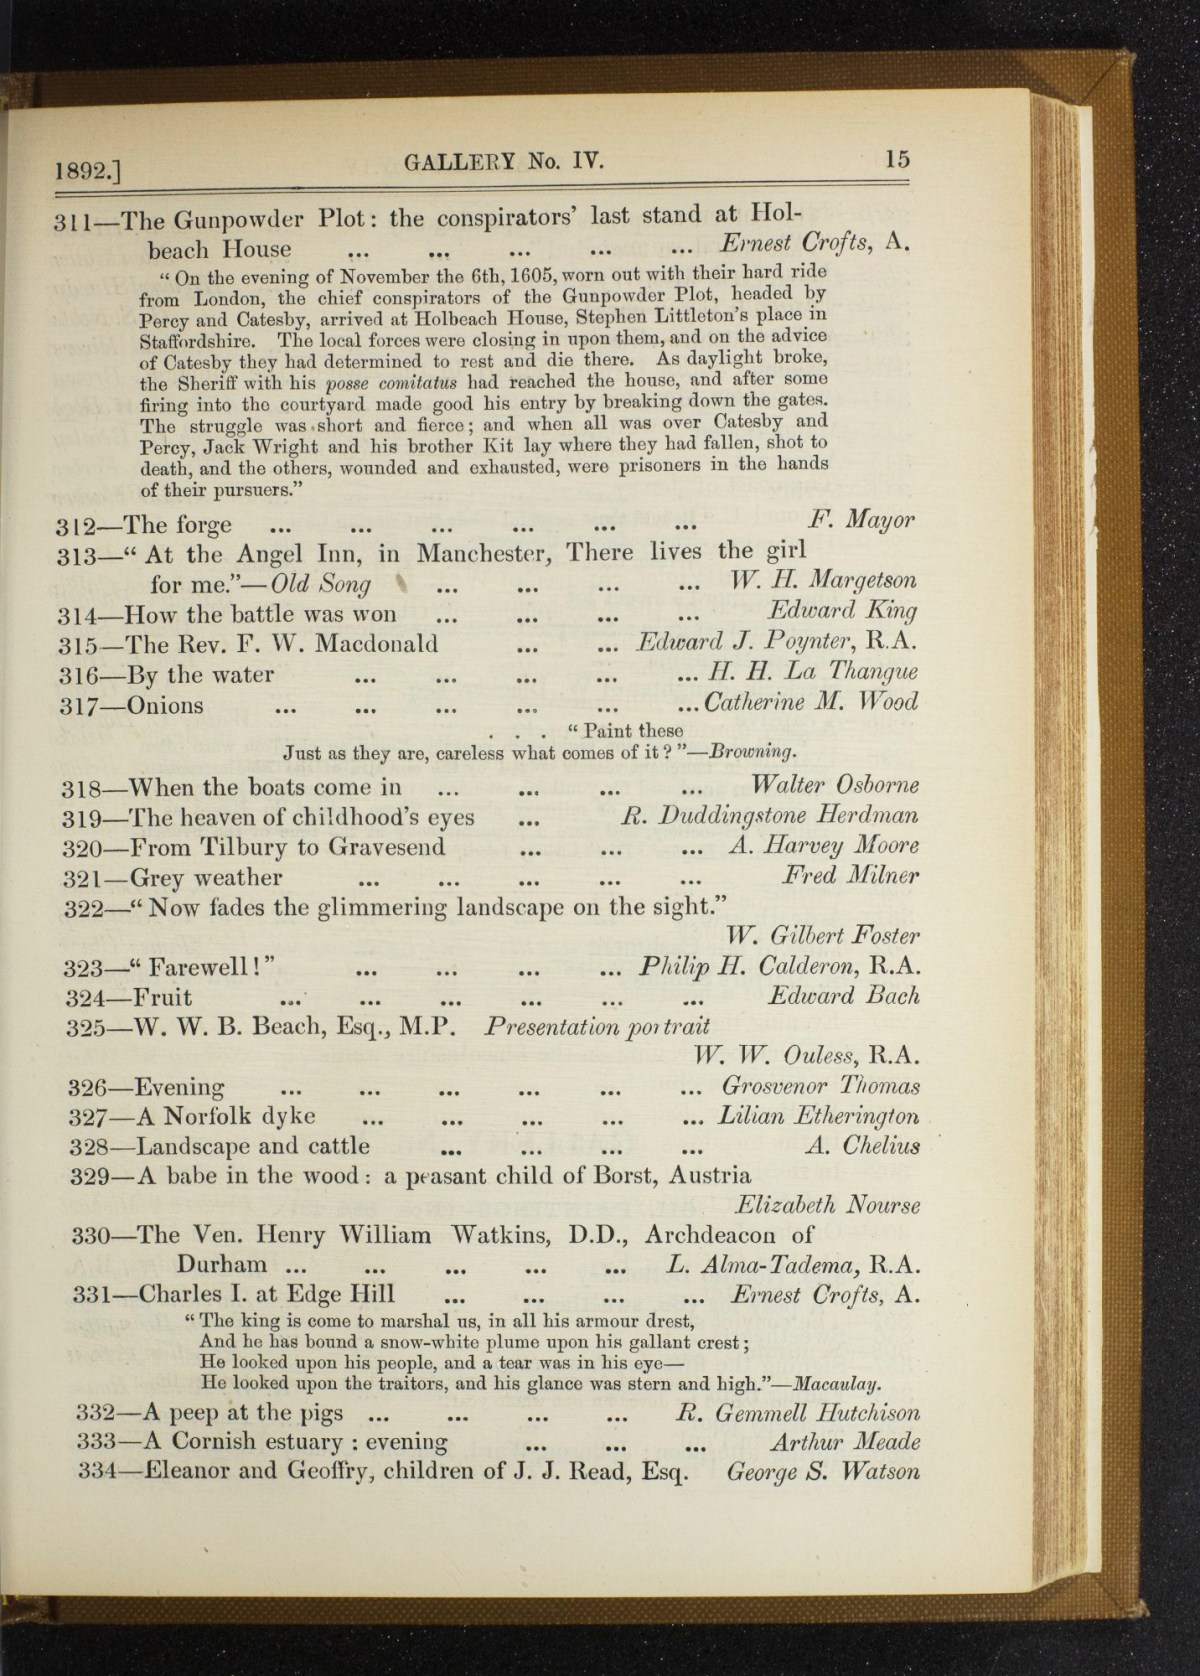 1892.] GALLERY No. IV. 15
311—The Gunpowder Plot: the conspirators' last stand at Hol-
beach House ... ... ... ... ... Ernest Crofts, A.
"On the evening of November the 6th, 1605, worn out with their hard ride
from London, the chief conspirators of the Gunpowder Plot, headed by
Percy and Catesby, arrived at Holbeach House, Stephen Littleton's place in
Staffordshire. The local forces were closing in upon them, and on the advice
of Catesby they had determined to rest and die there. As daylight broke,
the Sheriff with his posse comitatus had reached the house, and after some
firing into the courtyard made good his entry by breaking down the gates.
The struggle was short and fierce; and when all was over Catesby and
Percy, Jack Wright and his brother Kit lay where they had fallen, shot to
death, and the others, wounded and exhausted, were prisoners in the hands
of their pursuers."
312—The forge ... ... ... ... ... ... F. Mayor
313—"At the Angel Inn, in Manchester, There lives the girl
for me."—Old Song ... ... ... ... W. H. Margetson
314—How the battle was won ... ... ... ... Edward King
315—The Rev. F. W. Macdonald ... ... Edward J. Poynter, R.A.
316—By the water ... ... ... ... ... H. H. La Thangue
317—Onions ... ... ... ... ... ... Catherine M. Wood
. . . "Paint these
Just as they are, careless what comes of it?"—Browning.
318—When the boats come in ... ... ... ... Walter Osborne
319—The heaven of childhood's eyes ... R. Duddingstone Herdman
320—From Tilbury to Gravesend ... ... ... A. Harvey Moore
321—Grey weather ... ... ... ... ... Fred Milner
322—"Now fades the glimmering landscape on the sight."
W. Gilbert Foster
323—"Farewell!" ... ... ... ... Philip H. Calderon, R.A.
324—Fruit ... ... ... ... ... ... Edward Bach
325—W. W. B. Beach, Esq., M.P. Presentation portrait
W. W. Ouless, R.A.
326—Evening ... ... ... ... ... ... Grosvenor Thomas
327—A Norfolk dyke ... ... ... ... ... Lilian Etherington
328—Landscape and cattle ... ... ... ... A. Chelius
329—A babe in the wood: a peasant child of Borst, Austria
Elizabeth Nourse
330—The Ven. Henry William Watkins, D.D., Archdeacon of
Durham ... ... ... ... ... L. Alma-Tadema, R.A.
331—Charles I. at Edge Hill ... ... ... ... Ernest Crofts, A.
"The king is come to marshal us, in all his armour drest,
And he has bound a snow-white plume upon his gallant crest;
He looked upon his people, and a tear was in his eye—
He looked upon the traitors, and his glance was stern and high."—Macaulay.
332—A peep at the pigs ... ... ... ... R. Gemmell Hutchison
333—A Cornish estuary: evening ... ... ... Arthur Meade
334—Eleanor and Geoffry, children of J. J. Read, Esq. George S. Watson